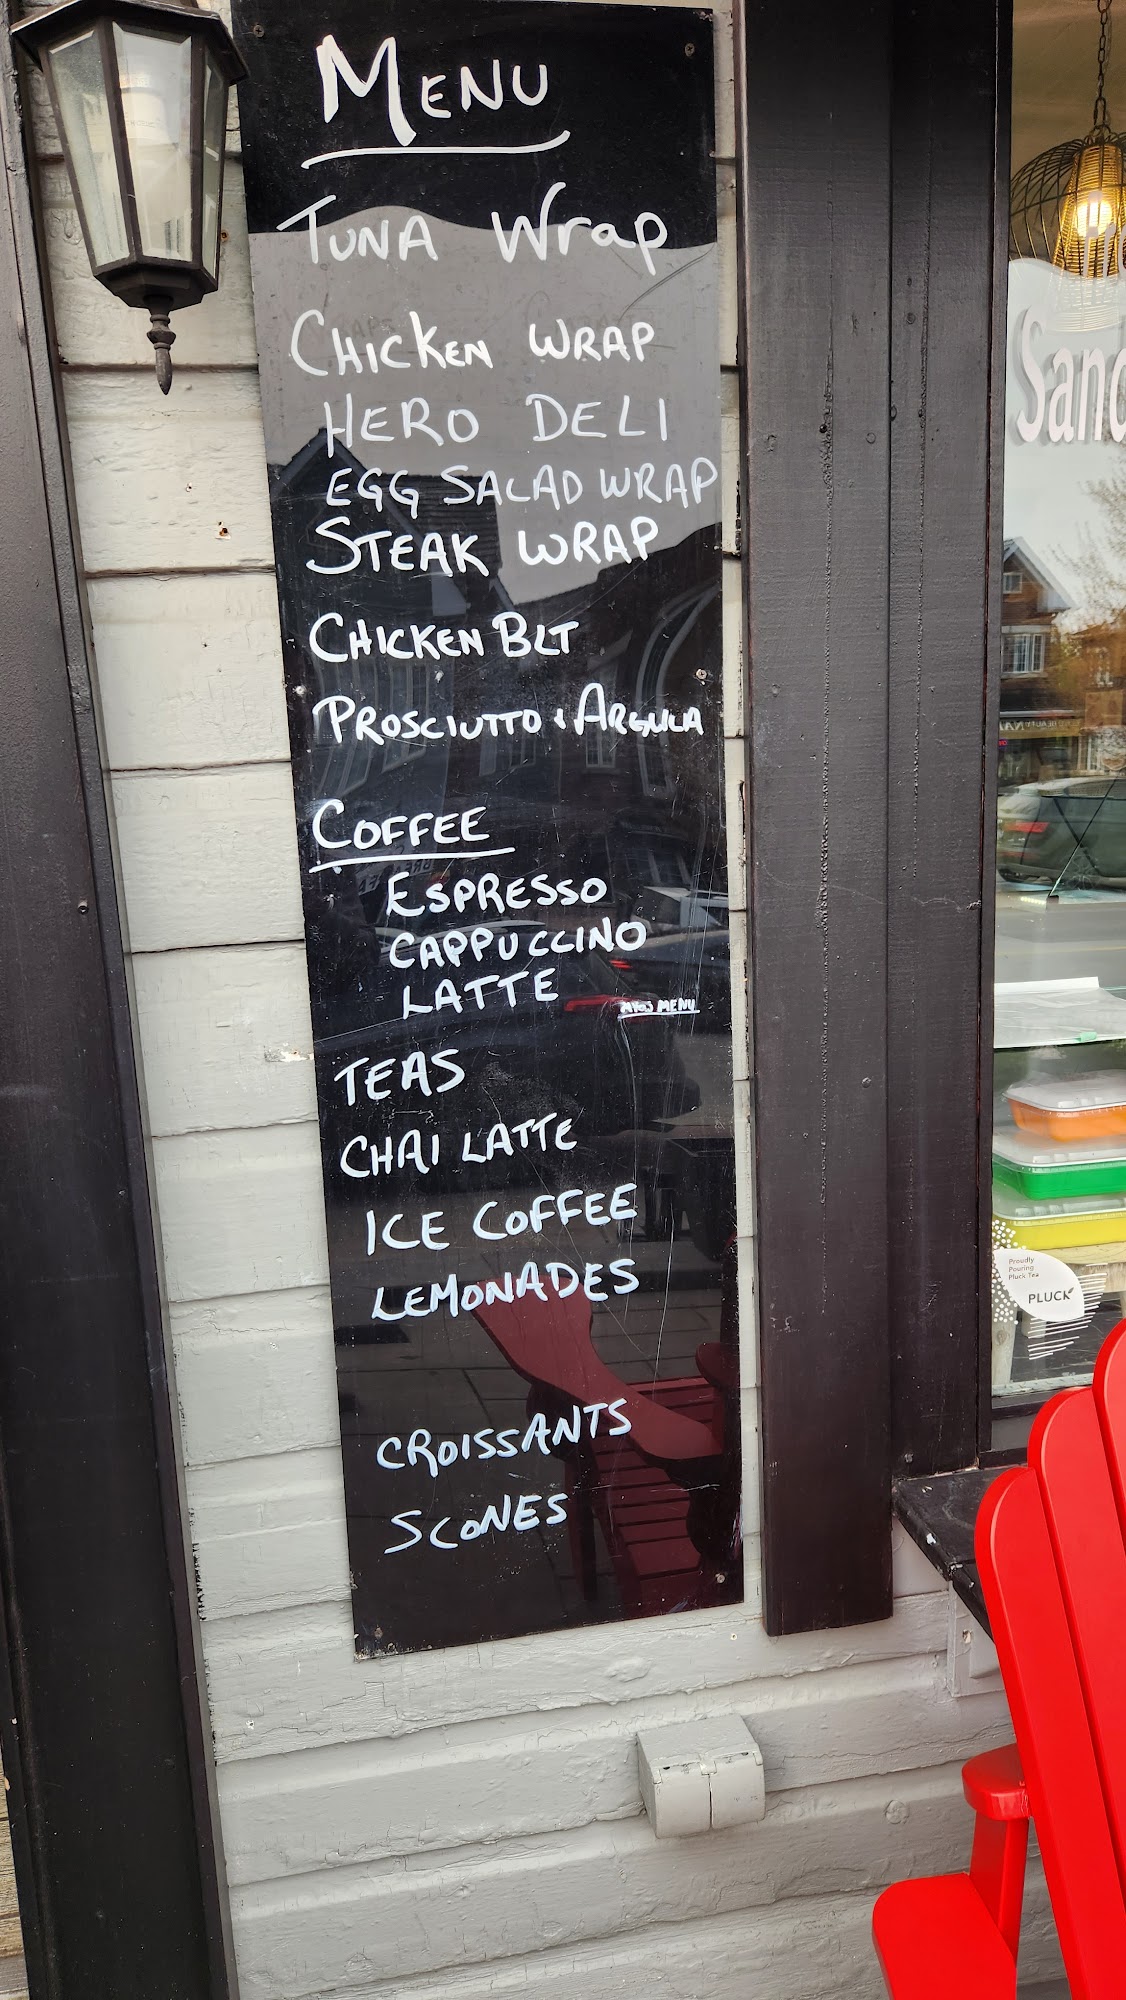 MENU
TUNA Wrap
CHICKEN WRAP
HERO DELI
EGG SALAD WRAP
STEAK WRAP
CHICKEN BLT
PROSCIUTTO & ARGULA
COFFEE
ESPRESSO
CAPPUCCINO
LATTE
MENU
TEAS
CHAI LATTE
ICE COFFEE
LEMONADES
CROISSANTS
SCONES
Sand
Proudly
Pouring
Pluck Tea
PLUCK